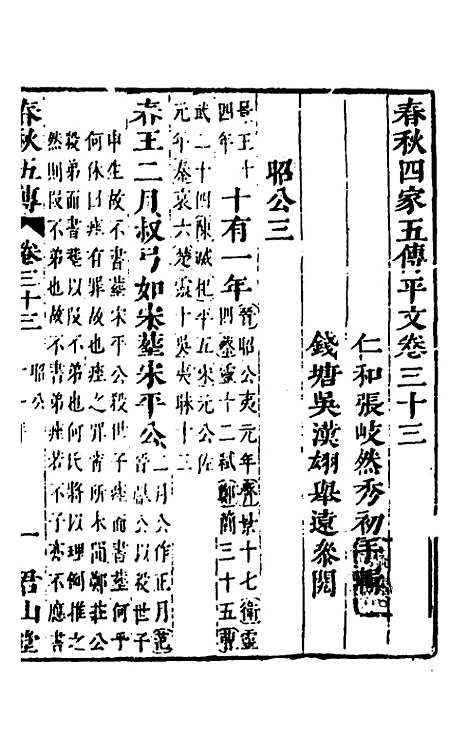 春秋四家五傳平文卷三十三
仁和張岐然秀初手輯
錢塘吳漢翊舉遠叅閱
昭公三
景王十四年
十有一年
晉昭公夷元年齊景十七衛靈四蔡靈十二弒鄭簡三十五曹
武二十四陳滅杞平五宋元公佐
元年秦哀六楚靈十吳夷昧十三
春王二月叔弓如宋葬宋平公
二月公作正月范
甯獻公以殺世子
申生故不書葬宋平公殺世子痤而書葬何乎
何休曰痤有罪故也痤之罪甯所未聞鄭莊公
殺弟而書葬以段不弟也何氏將以理例推之
然則段不弟也故不書弟痤若不子亦不應書
春秋五傳
卷三十三
昭公
十一年
一
君山堂